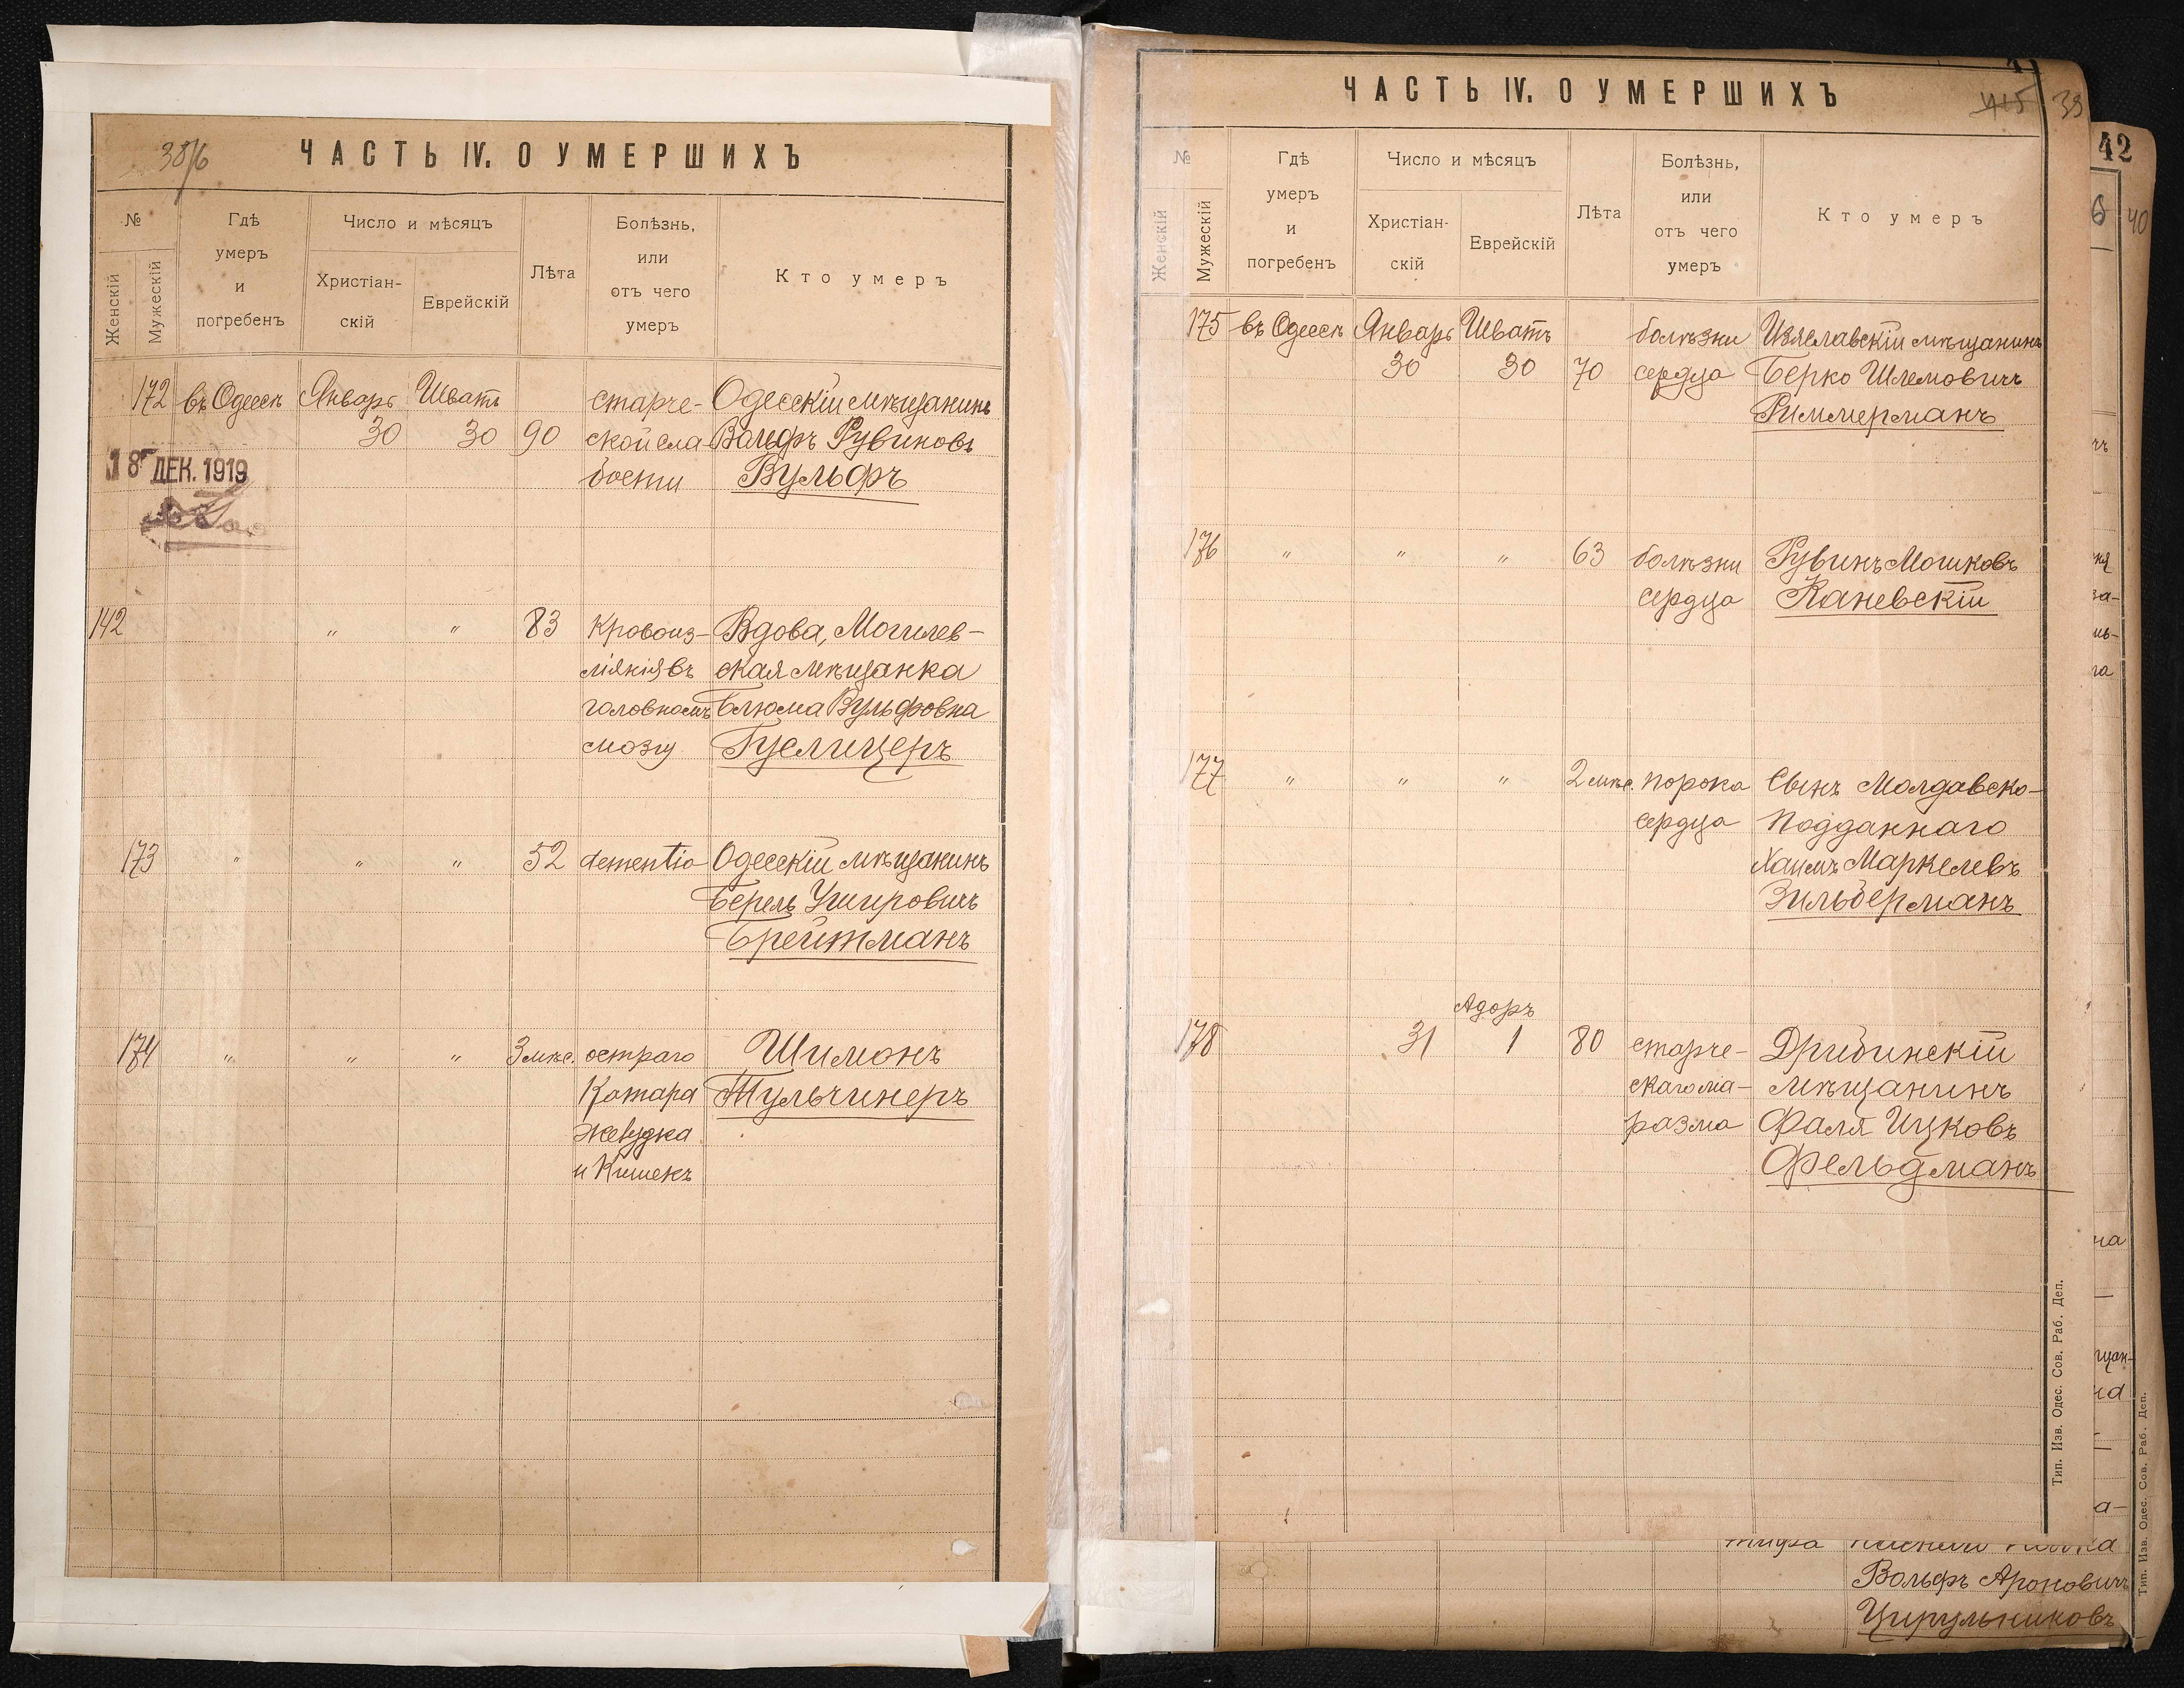 ЧАСТЬ IV. О УМЕРШИХЪ
№
Женскій
Мужескій
Гдѣ
умеръ
и
погребенъ
Число и мѣсяцъ
Христіан-
скій
Еврейскій
Лѣта
Болѣзнь,
или
отъ чего
умеръ
Кто умеръ
172 въ Одессѣ Январь Шватъ старче- Одесскій мѣщанинъ
30 30 90 ской сла- Вольфъ Рувиновъ
бости Вульфъ
18 ДЕК. 1919
142 " " 83 Кровоиз- Вдова, Могилев-
ліянія въ ская мѣщанка
головномъ Блюма Вульфовна
мозгу Гуслицеръ
173 " " " 52 dementia Одесскій мѣщанинъ
Берель Ушировичъ
Брейтманъ
174 " " " 3 мѣс. остраго Шимонъ
Катара Тульчинеръ
желудка
и Кишекъ
ЧАСТЬ IV. О УМЕРШИХЪ
415 39
№
Женскій
Мужескій
Гдѣ
умеръ
и
погребенъ
Число и мѣсяцъ
Христіан-
скій
Еврейскій
Лѣта
Болѣзнь,
или
отъ чего
умеръ
Кто умеръ
175 въ Одессѣ Январь Шватъ болѣзни Изяславскій мѣщанинъ
30 30 70 сердца Берко Шлемовичъ
Риммерманъ
176 " " " 63 болѣзни Рувинъ Мошковъ
сердца Каневскій
177 " " " 2 мѣс. порока Сынъ Молдавско-
сердца подданнаго
Хаимъ Маркелевъ
Зильберманъ
Адоръ
178 31 1 80 старче- Дрибинскій
скаго ма- мѣщанинъ
разма Фаля Ицковъ
Фельдманъ
Тип. Изв. Одес. Сов. Раб. Деп.
42
40
тифа
Вольфъ Ароновичъ
Цирульниковъ
Тип. Изв. Одес. Сов. Раб. Деп.